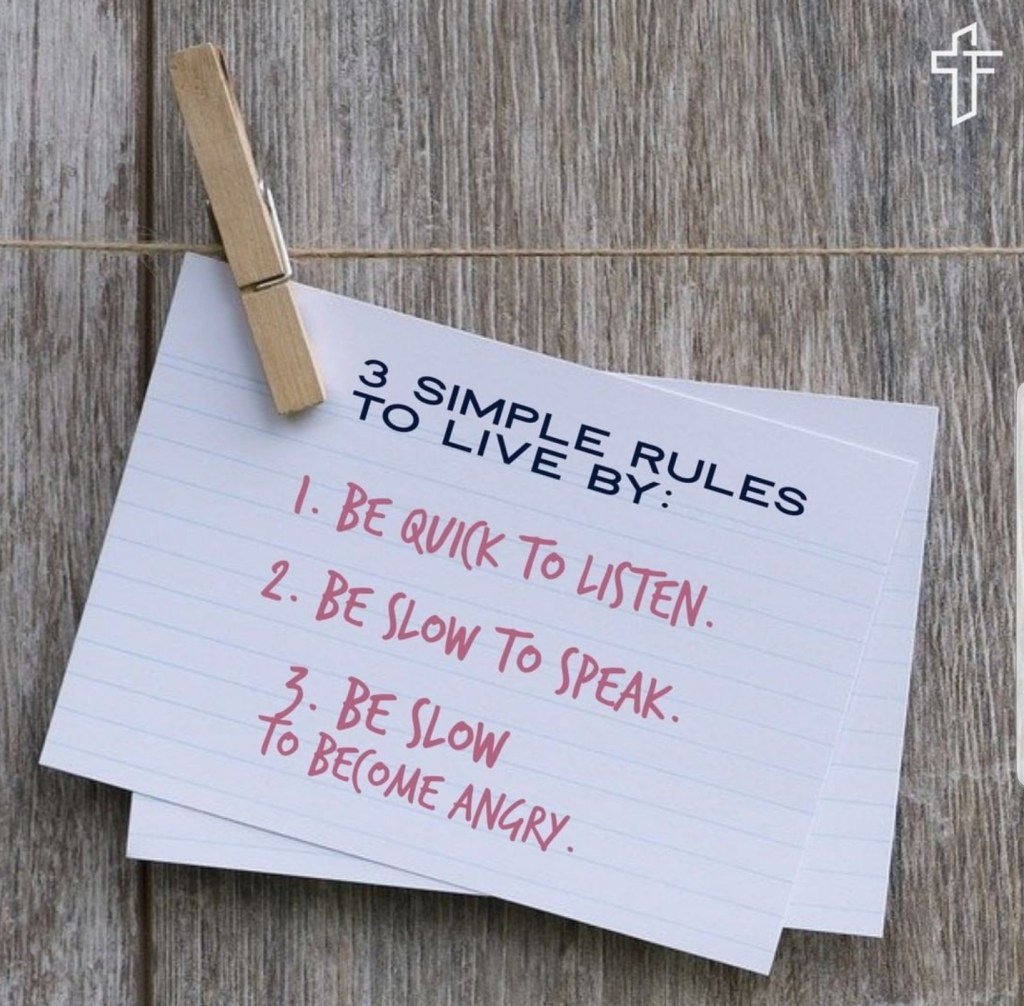 3 SIMPLE RULES
TO LIVE BY:
1. BE QUICK TO LISTEN.
2. BE SLOW TO SPEAK.
3. BE SLOW
TO BECOME ANGRY.